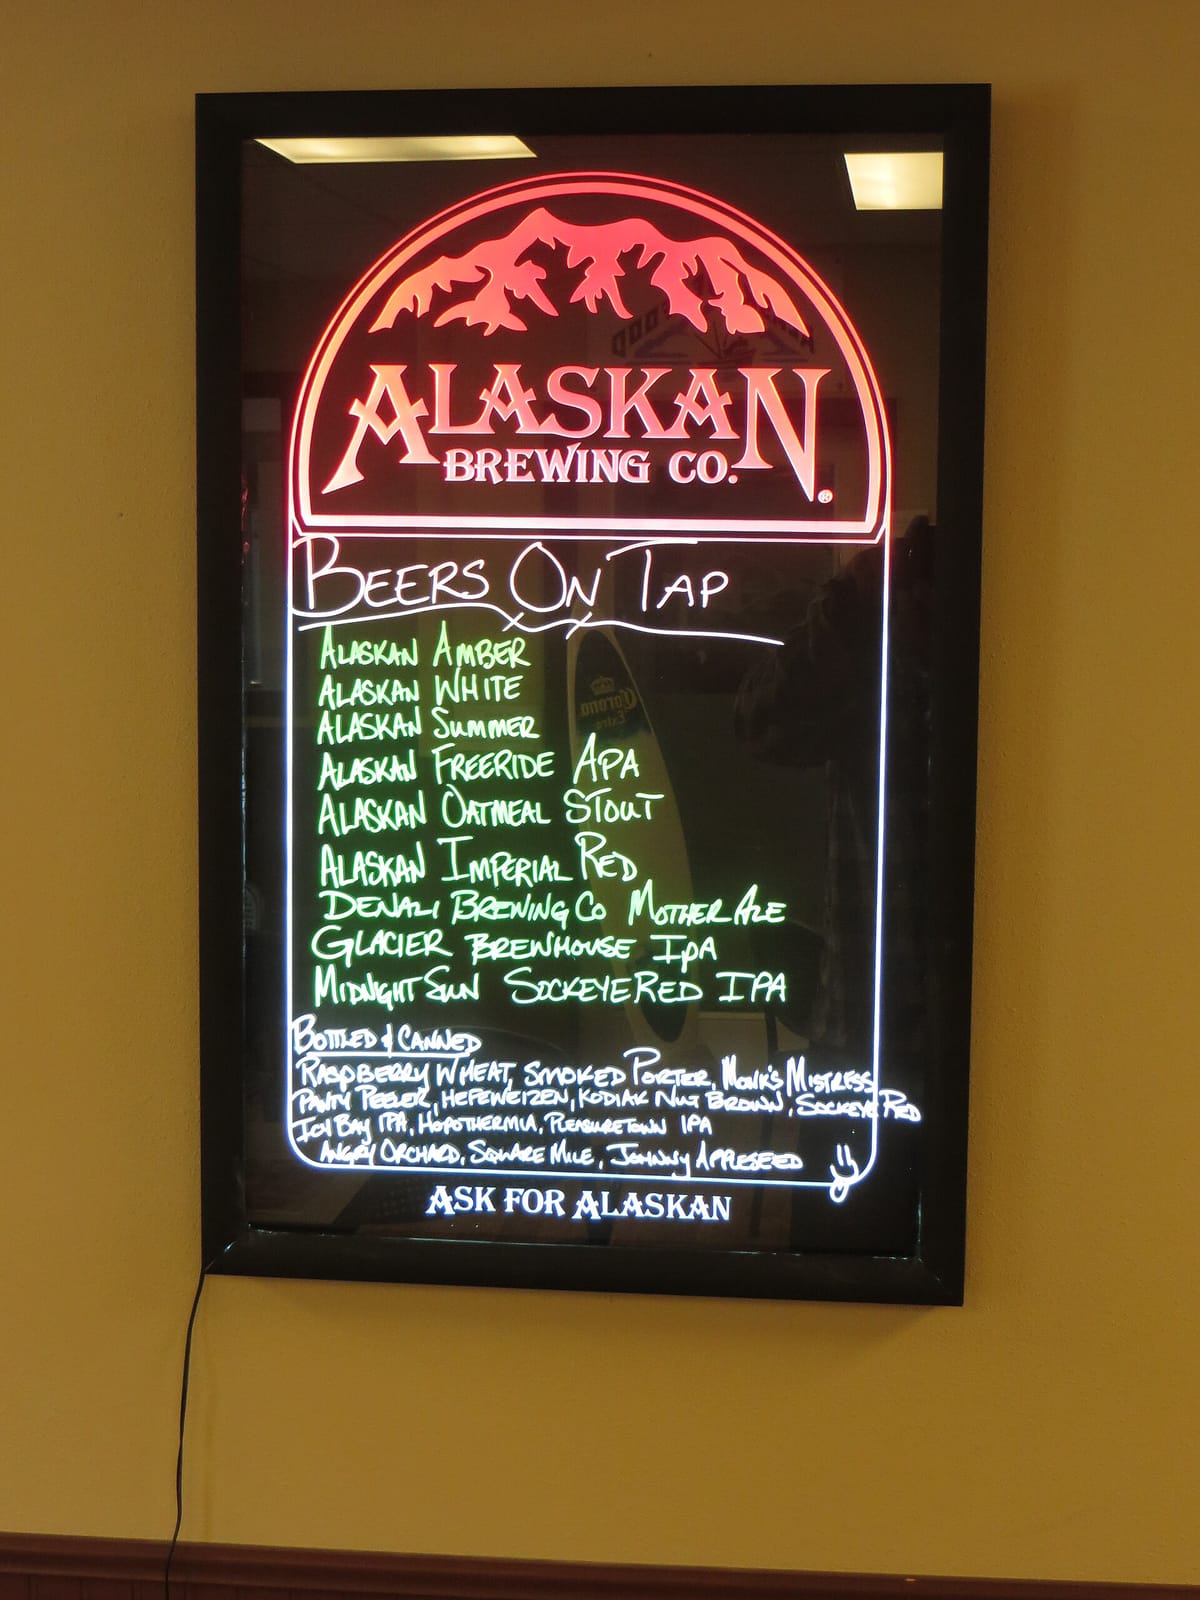 ALASKAN
BREWING CO.®
BEERS ON TAP
ALASKAN AMBER
ALASKAN WHITE
ALASKAN SUMMER
ALASKAN FREERIDE APA
ALASKAN OATMEAL STOUT
ALASKAN IMPERIAL RED
DENALI BREWING CO MOTHER ALE
GLACIER BREWHOUSE IPA
MIDNIGHT SUN SOCKEYE RED IPA
BOTTLED & CANNED
RASPBERRY WHEAT, SMOKED PORTER, MONK'S MISTRESS
PANTY PEELER, HEFEWEIZEN, KODIAK NUT BROWN, SOCKEYE RED
ICY BAY IPA, HOPOTHERMIA, PLEASURETOWN IPA
ANGRY ORCHARD, SQUARE MILE, JOHNNY APPLESEED
ASK FOR ALASKAN
Corona
Extra